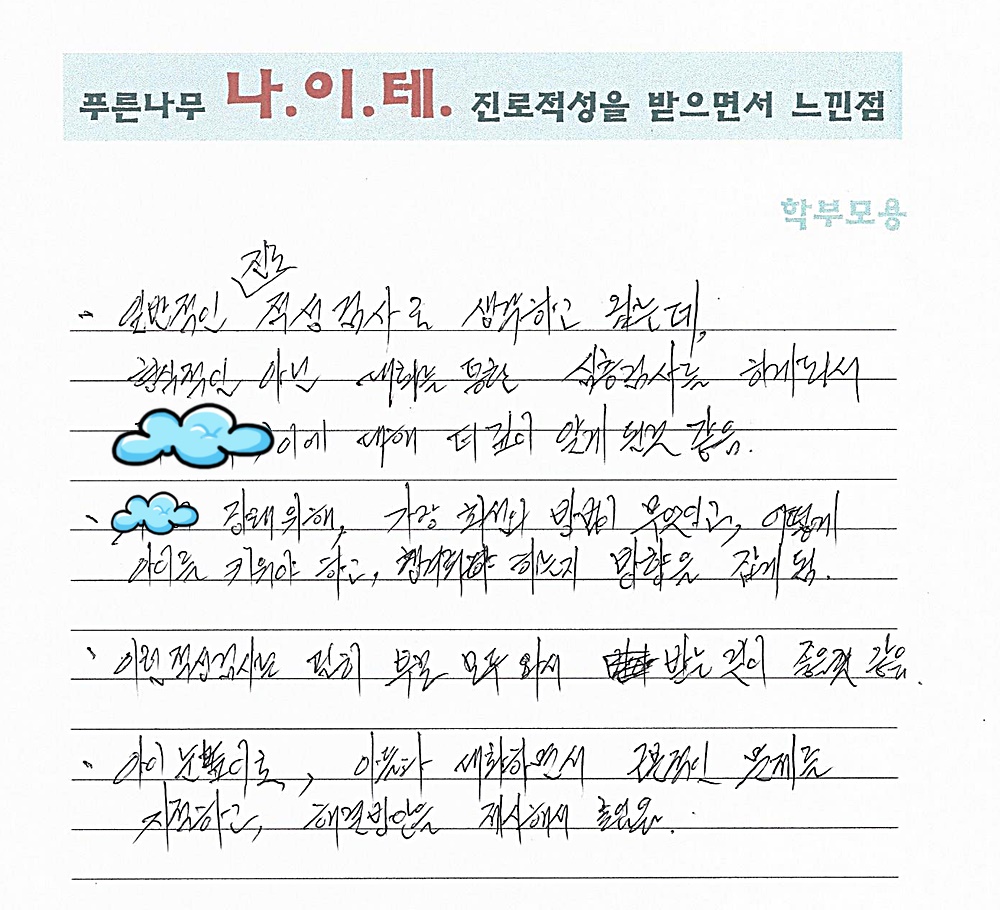 푸른나무 나.이.테. 진로적성을 받으면서 느낀점
학부모용
진로
· 일반적인 적성검사로 생각하고 왔는데,
형식적인 아닌 대화를 통한 심층검사를 하게되서
이에 대해 더 깊이 알게 된것 같음.
· 장래위해, 가장 최선의 방법이 무엇이고, 어떻게
아이를 키워야 하고, 하는지 방향을 잡게 됨.
· 이런 적성검사는 필히 부모 모두 와서 받는 것이 좋은것 같음.
· 아이 눈높이로, 아이와 대화하면서 근본적인 문제를
지적하고, 해결방안을 제시해서 좋았음.